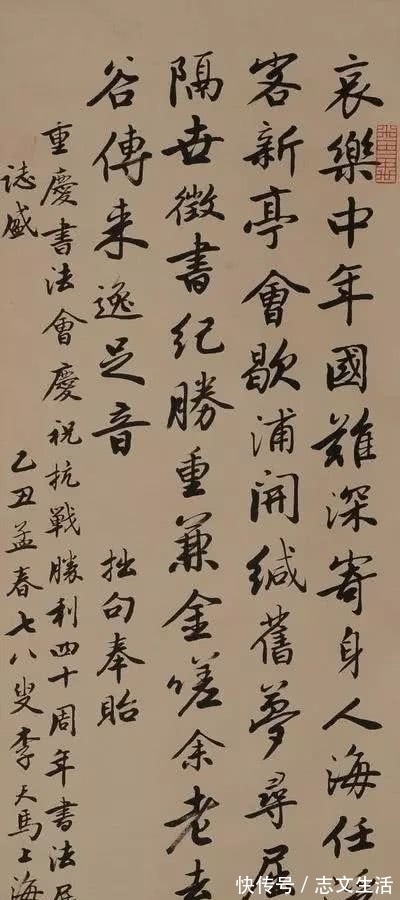 哀樂中年國難深寄身人海任
客新亭會歇浦開緘舊夢尋
隔世徵書紀勝重兼金嗟余老去
谷傳來逸足音 拙句奉貽
重慶書法會慶祝抗戰勝利四十周年書法展
誌盛 乙丑孟春七八叟李天馬上海
快传号/志文生活